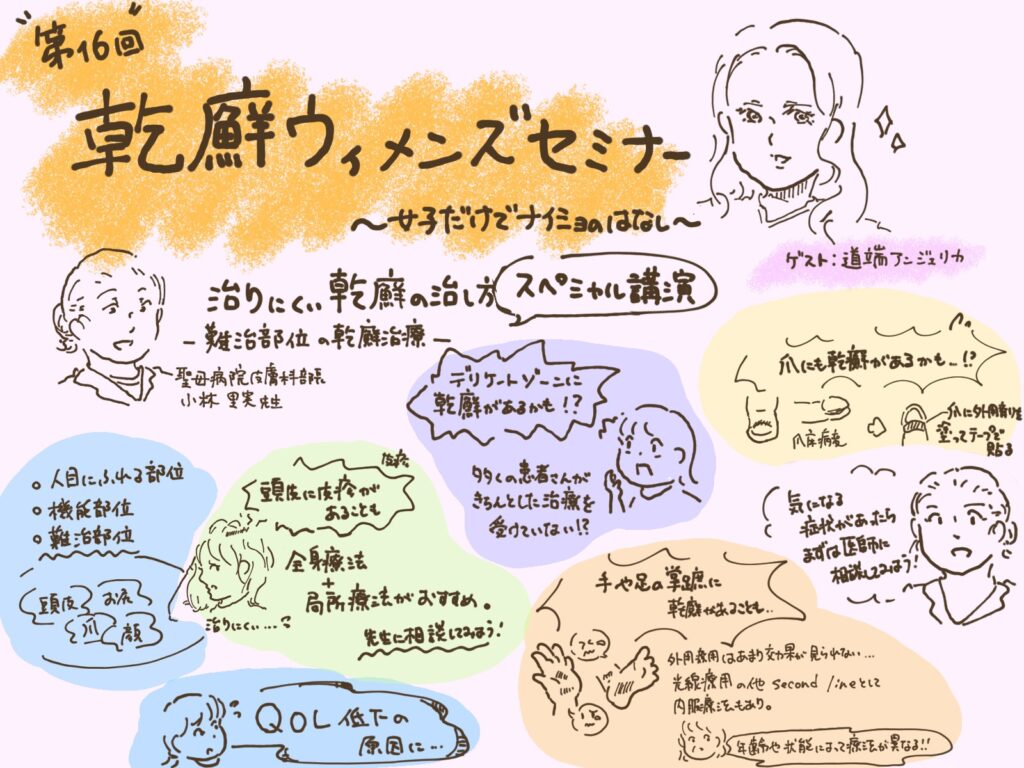 "第16回"
乾癬ウィメンズセミナー
〜女子だけでナイショのはなし〜
ゲスト:道端アンジェリカ
治りにくい乾癬の治し方
スペシャル講演
-難治部位の乾癬治療-
聖母病院皮膚科部長
小林里実先生
人目にふれる部位
機能部位
難治部位
頭皮
お尻
爪
顔
皮疹
頭皮に皮疹が
あることも
全身療法
+
局所療法がおすすめ。
先生に相談してみよう!
治りにくい…
QOL低下の
原因に…
デリケートゾーンに
乾癬があるかも!?
多くの患者さんが
きちんとした治療を
受けていない!?
爪にも乾癬があるかも…!?
爪床病変
爪に外用剤を
塗ってテープで
貼る
気になる
症状があったら
まずは医師に
相談してみよう!
手や足の掌蹠に
乾癬があることも…
外用療用はあまり効果が見られない…
光線療用の他second lineとして
内服療法もあり。
年齢や状態によって療法が異なる!!